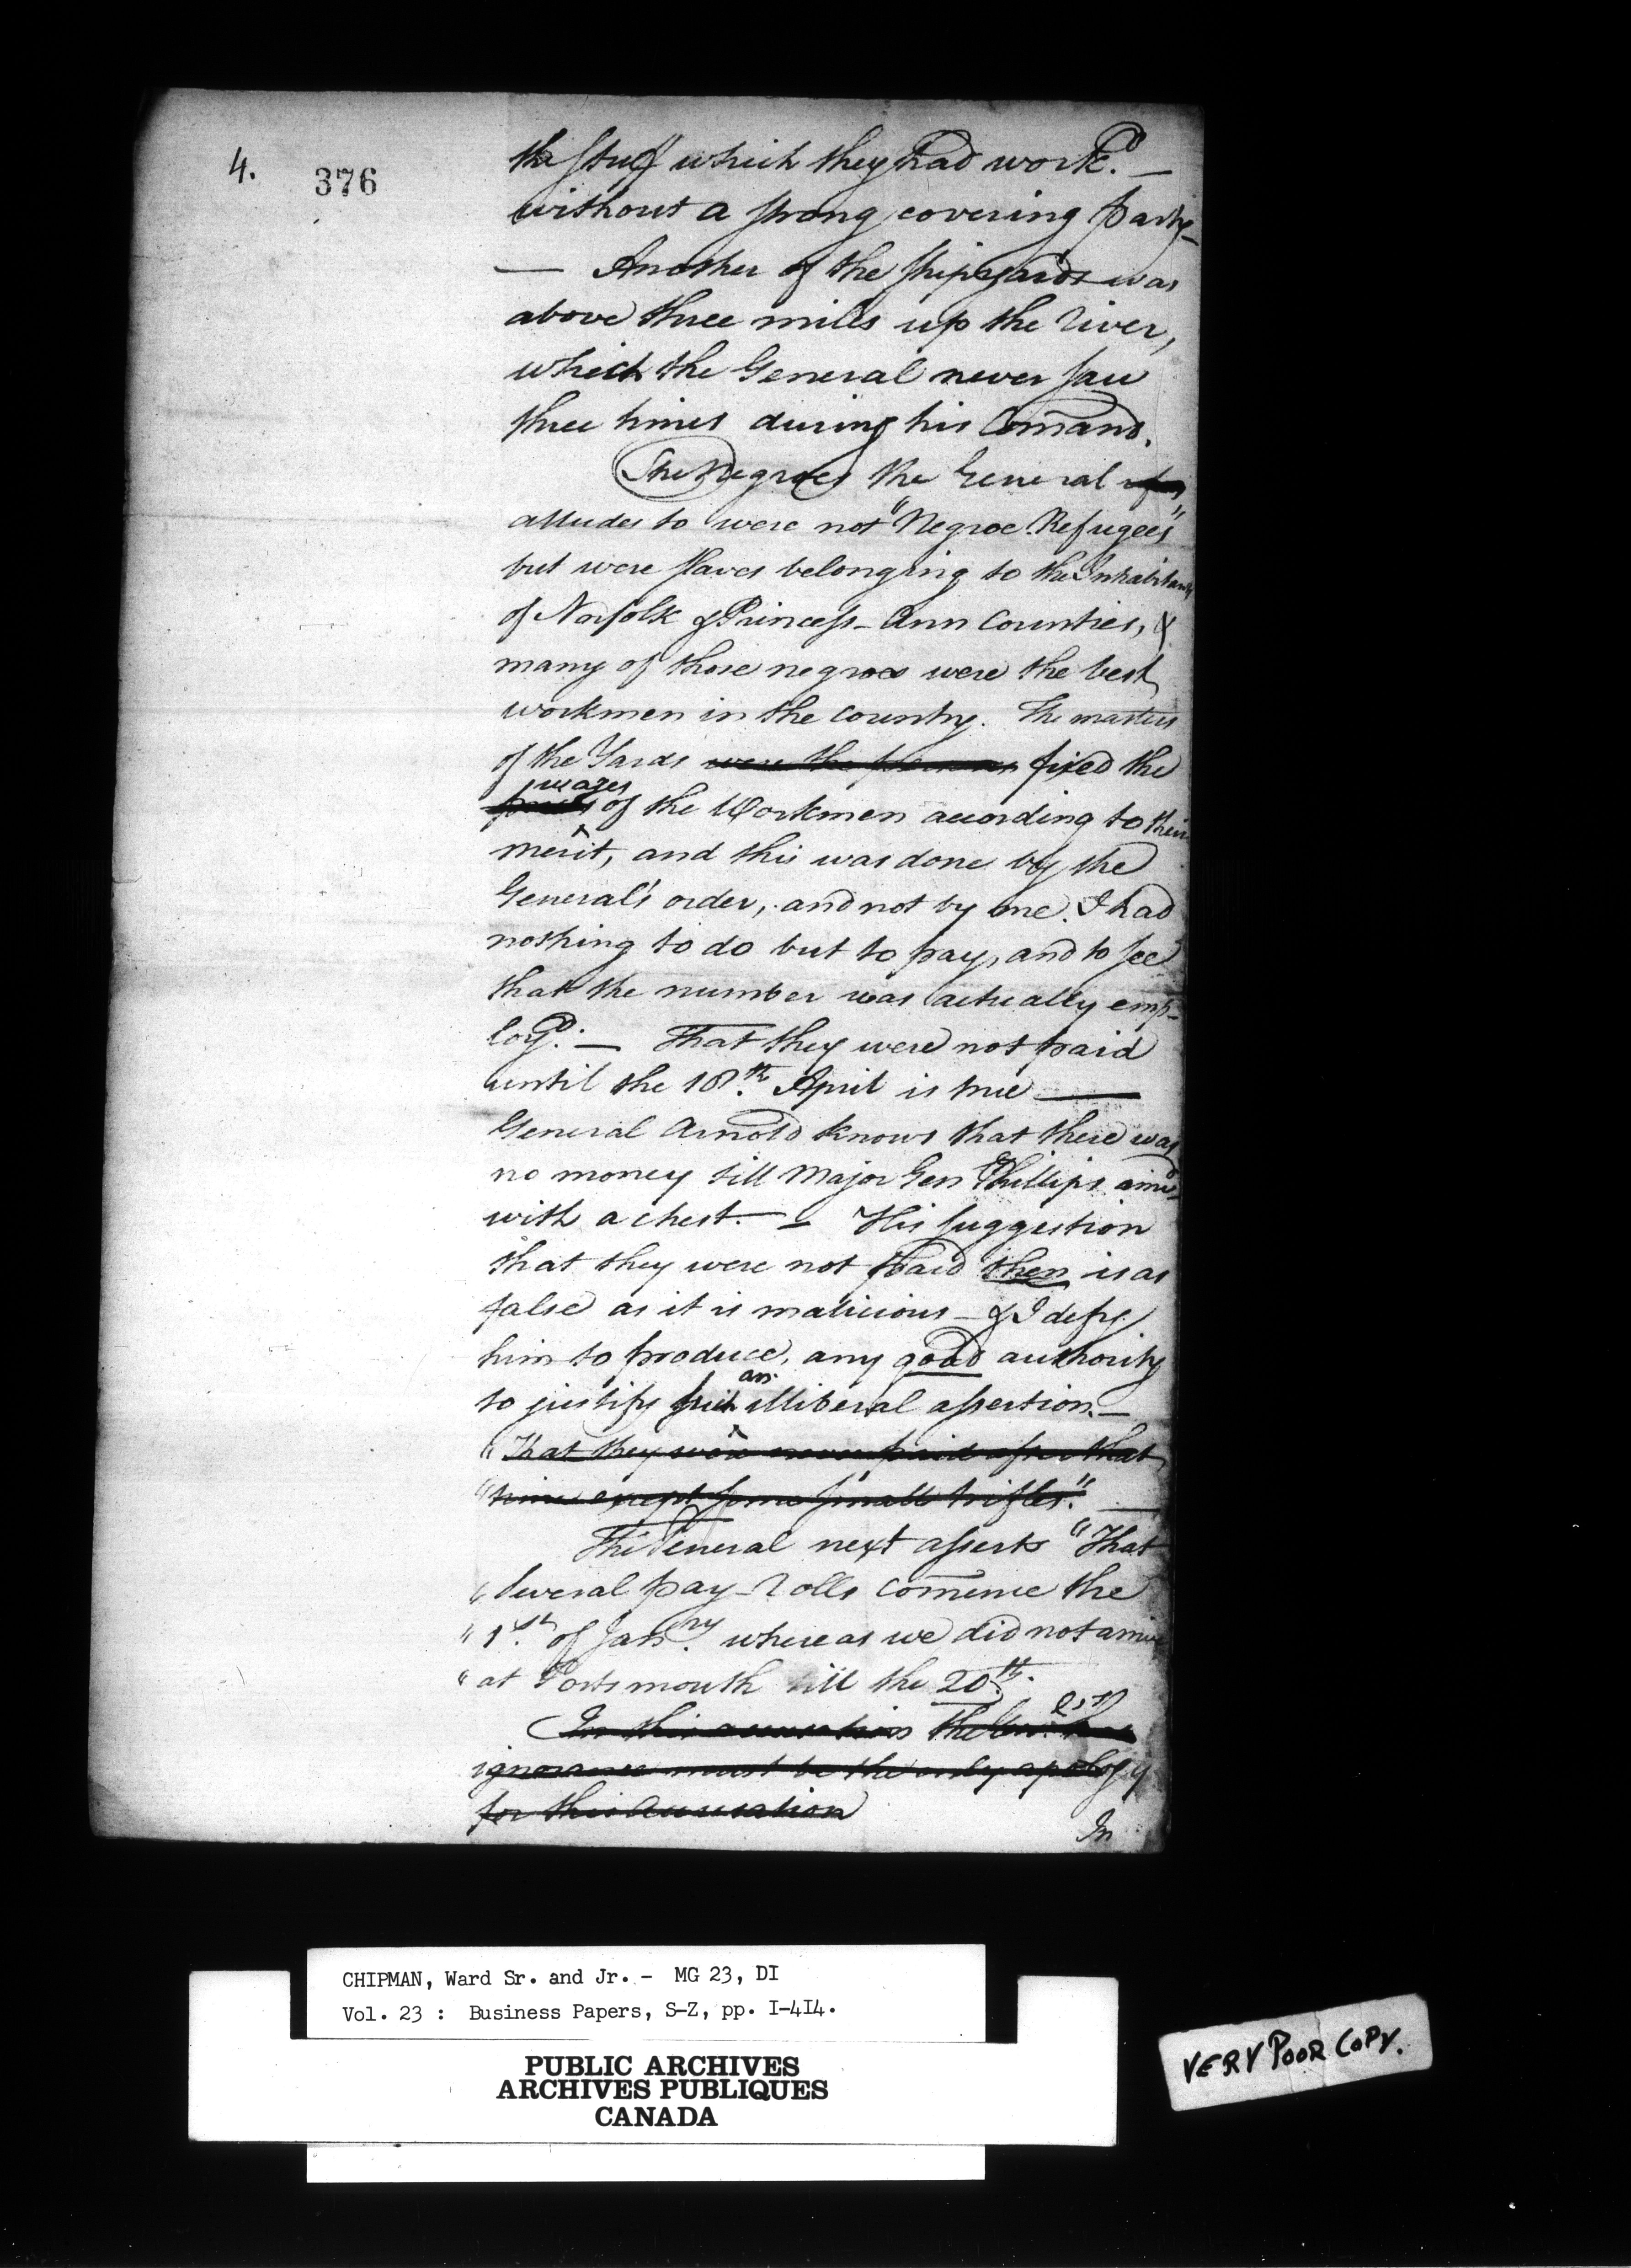 4.
376
the stuff which they had work.d —
without a strong covering party—
— Another of the shipyards was
above three miles up the river,
which the General never saw
three times during his Comand.
The Negroes the General
alludes to were not "Negroe Refugees"
but were slaves belonging to the Inhabitants
of Norfolk & Princess-Ann Counties, &
many of those negroes were the best
workmen in the country. The masters
of the Yards were the persons fixed the
wages
prices of the Workmen according to their
merit, and this was done by the
General's order, and not by me. I had
nothing to do but to pay, and to see
that the number was actually emp-
loy.d — That they were not paid
until the 18.th April is true —
General Arnold knows that there was
no money till Major Gen Phillips
with a chest. — His suggestion
that they were not paid then is as
false as it is malicious — & I defy
him to produce, any good authority
an
to justify such illiberal assertion. —
"That they were never paid after that
"time except some small trifles." —
The General next asserts "That
"several pay-rolls comence the
"1.st of Jan.ry whereas we did not arrive
"at Portsmouth till the 20.th.
In this accusation the
ignorance must be the only apology
for this accusation
In
CHIPMAN, Ward Sr. and Jr. - MG 23, DI
Vol. 23 : Business Papers, S-Z, pp. I-4I4.
PUBLIC ARCHIVES
ARCHIVES PUBLIQUES
CANADA
VERY POOR COPY.